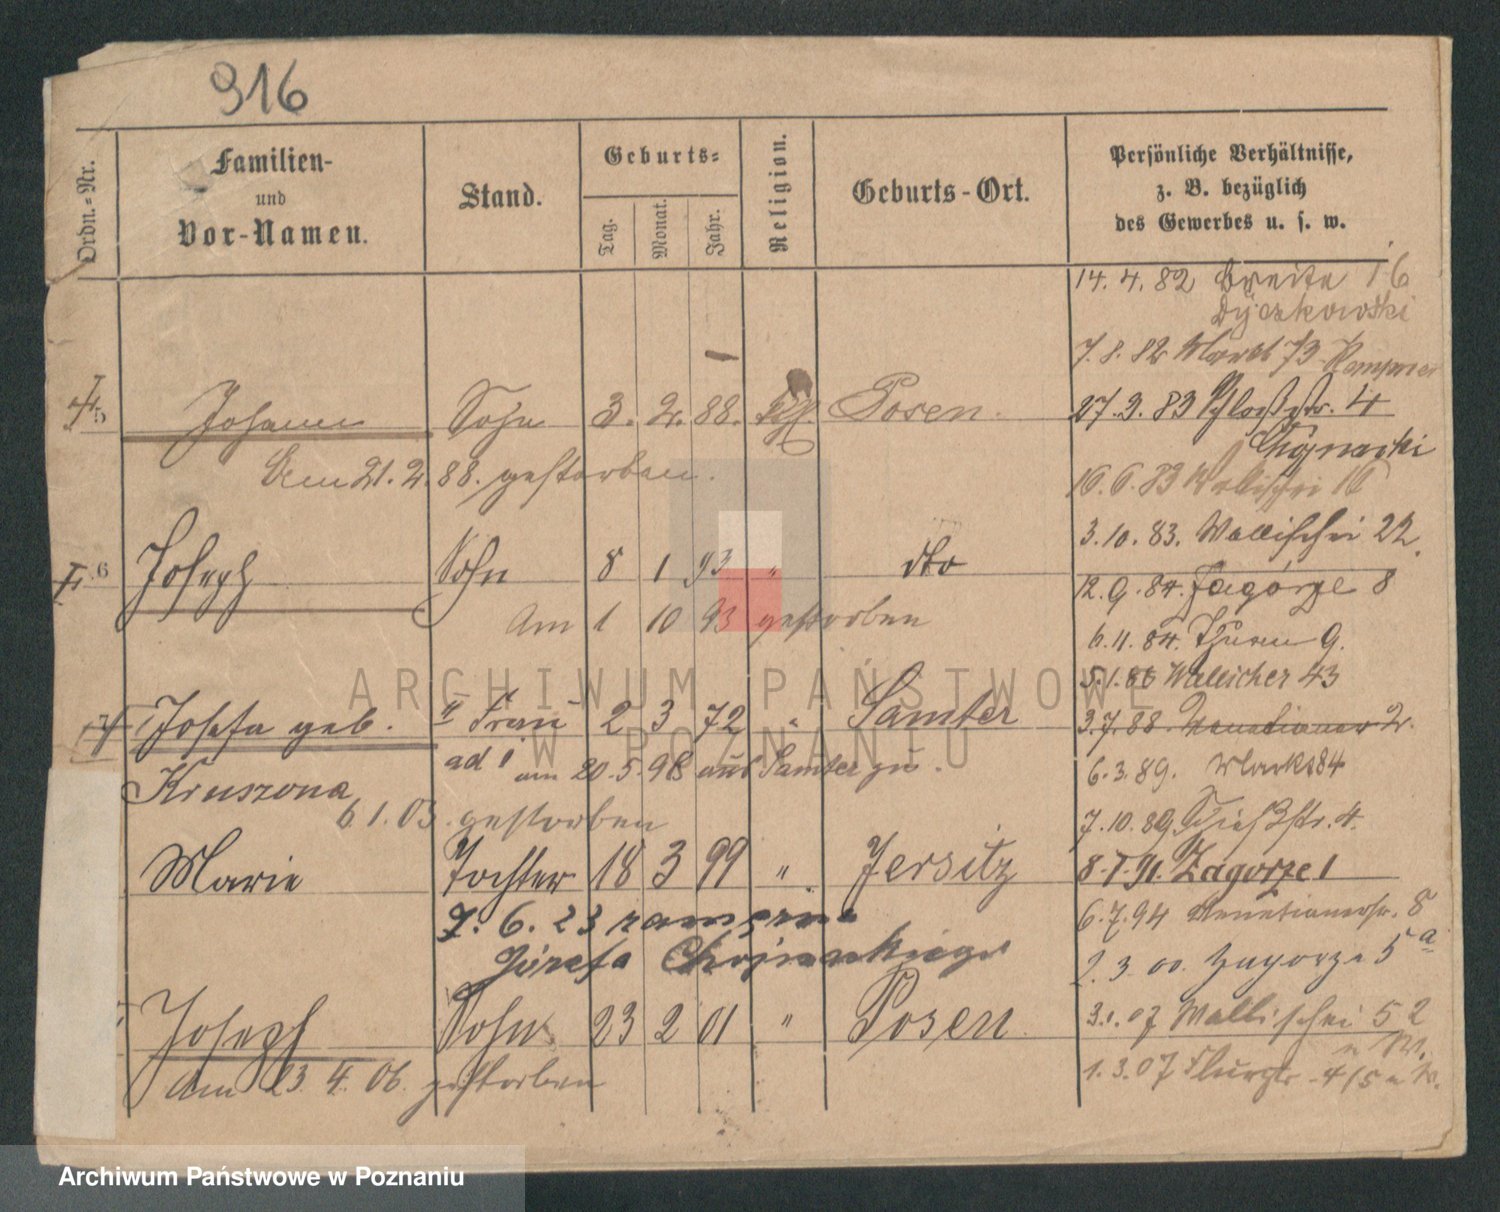 916
Ordn.-Nr.
Familien-
und
Vor-Namen.
Stand.
Geburts-
Tag.
Monat.
Jahr.
Religion.
Geburts-Ort.
Persönliche Verhältnisse,
z. B. bezüglich
des Gewerbes u. s. w.
14. 4. 82 Breite 16
Dyczkowski
7. 8. 82 Markt 73
5 Johann Sohn 3. 2. 88. kath. Posen.
27. 9. 83 Schloßstr. 4
Chojnacki
Am 21. 2. 88. gestorben.
16. 6. 83 Wallischei 16
3. 10. 83. Wallischei 22.
6 Joseph Sohn 8 1 93 " dto
12. 9. 84. Zagórze 8
Am 1 10 93 gestorben
6. 11. 84. Thurm 9.
5. 1. 86 Wallischei 43
Josefa geb. II Frau 2 3 72 " Samter
3. 7. 88. Venetianer 2.
Kruszona
ad 1 am 20. 5. 98 aus Samter zu.
6. 3. 89. Markt 84
6. 1. 03. gestorben
7. 10. 89. Schießstr. 4.
Marie Tochter 18 3 99 " Jersitz
8. I. 91. Zagorze 1
7. 6. 23 zamężna
6. 7. 94 Venetianerstr. 8
Józefa Chojnackiego
2. 3. 00. Zagorze 5 a
Joseph Sohn 23 2 01 " Posen
3. 1. 07 Wallischei 52
u W.
Am 23. 4. 06. gestorben
1. 3. 07 Flurstr. 4/5 u W.
ARCHIWUM PAŃSTWOWE
W POZNANIU
Archiwum Państwowe w Poznaniu